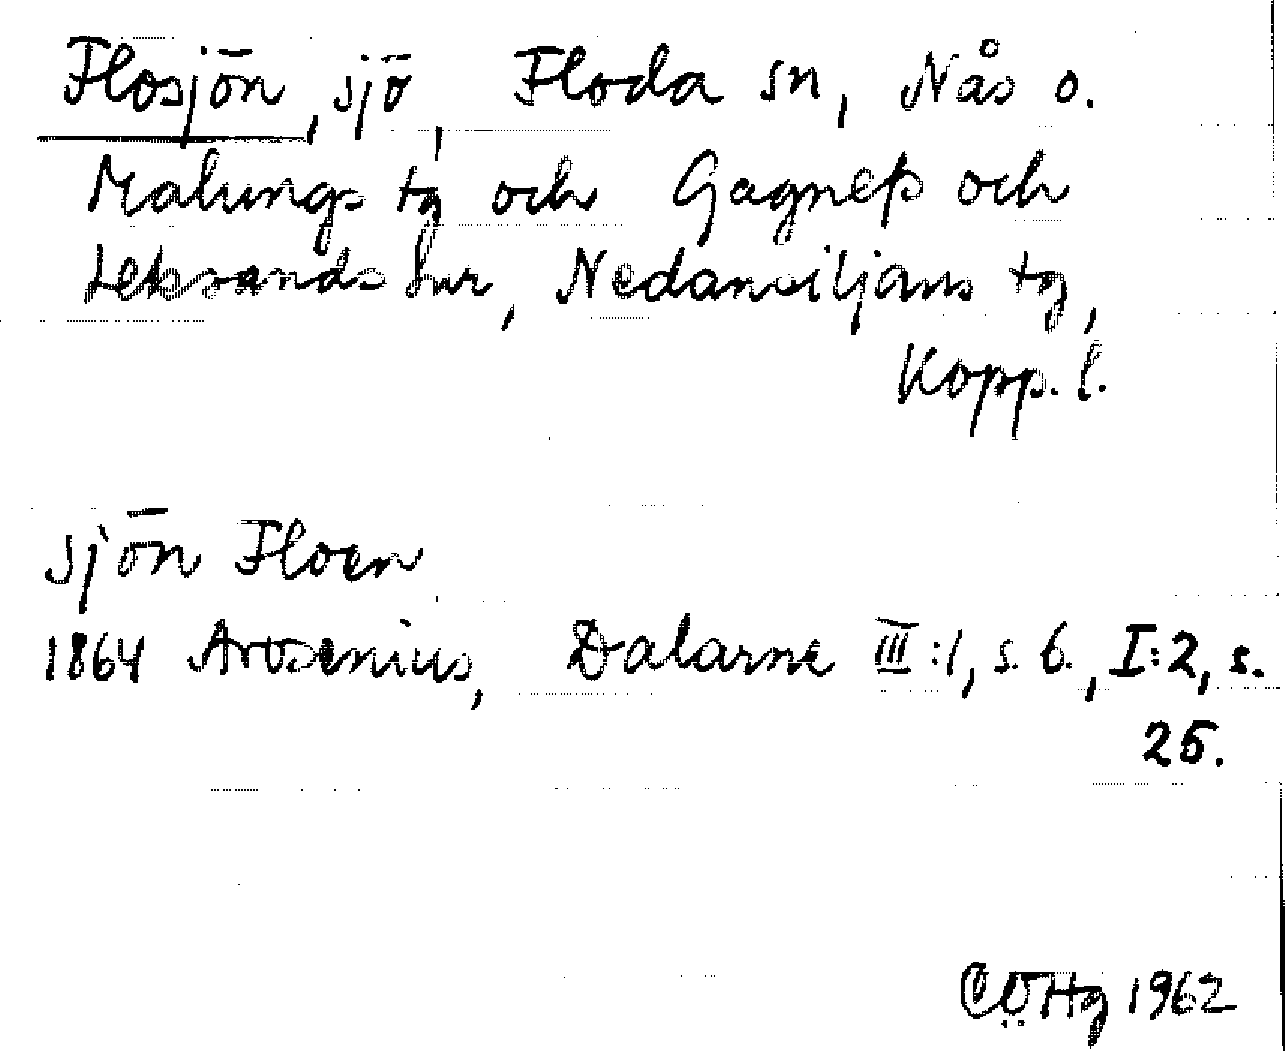 Flosjön, sjö, Floda sn, Nås o.
Malungs tg och Gagnefs och
Leksands snr, Nedansiljans tg,
Kopp. l.
sjön Floen
1864 Arosenius, Dalarne III:1, s. 6., I:2, s.
25.
CÖHg 1962